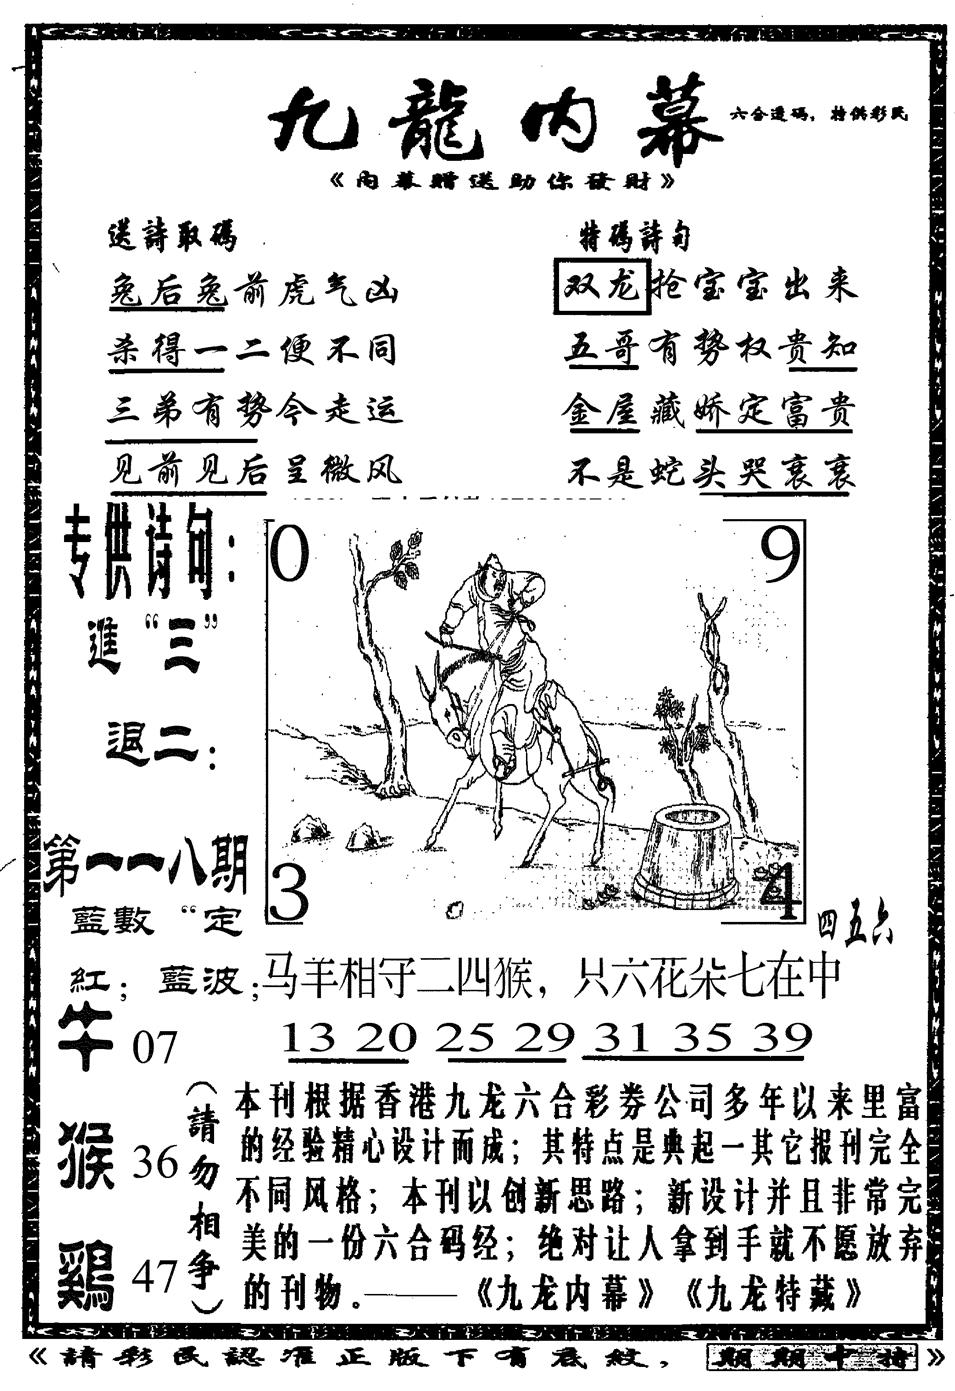 九龍内幕
六合透码，特供彩民
《内幕赠送助你發财》
送詩取碼
兔后兔前虎气凶
杀得一二便不同
三弟有势今走运
见前见后呈微风
特碼詩句
双龙抢宝宝出来
五哥有势权贵知
金屋藏娇定富贵
不是蛇头哭衰衰
专供诗句：
進“三”
退二：
第一一八期
藍數“定
紅；藍波；
0
9
3
4
四五六
马羊相守二四猴，只六花朵七在中
13 20 25 29 31 35 39
牛 07
猴 36
鷄 47
（請勿相争）
本刊根据香港九龙六合彩券公司多年以来里富
的经验精心设计而成；其特点是典起一其它报刊完全
不同风格；本刊以创新思路；新设计并且非常完
美的一份六合码经；绝对让人拿到手就不愿放弃
的刊物。——《九龙内幕》《九龙特藏》
《請彩民認准正版下有底紋，期期中特》